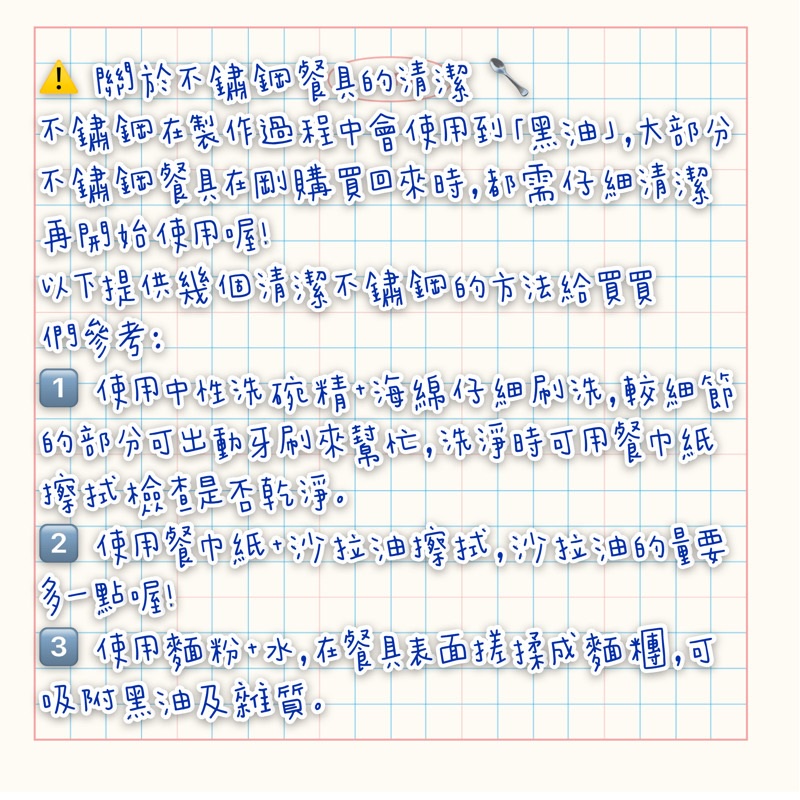 ⚠️ 關於不鏽鋼餐具的清潔 🥄
不鏽鋼在製作過程中會使用到「黑油」,大部分
不鏽鋼餐具在剛購買回來時,都需仔細清潔
再開始使用喔!
以下提供幾個清潔不鏽鋼的方法給買買
們參考:
1️⃣ 使用中性洗碗精+海綿仔細刷洗,較細節
的部分可出動牙刷來幫忙,洗淨時可用餐巾紙
擦拭檢查是否乾淨。
2️⃣ 使用餐巾紙+沙拉油擦拭,沙拉油的量要
多一點喔!
3️⃣ 使用麵粉+水,在餐具表面搓揉成麵糰,可
吸附黑油及雜質。